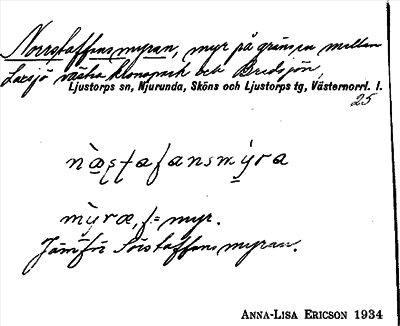 Norrstaffansmyran, myr på gränsen mellan
Laxsjö västra kronopark och Bredsjön,
Ljustorps sn, Njurunda, Sköns och Ljustorps tg, Västernorrl. l.
25
mỳræ, f. = myr.
Jämför Sörstaffansmyran.
ANNA-LISA ERICSON 1934